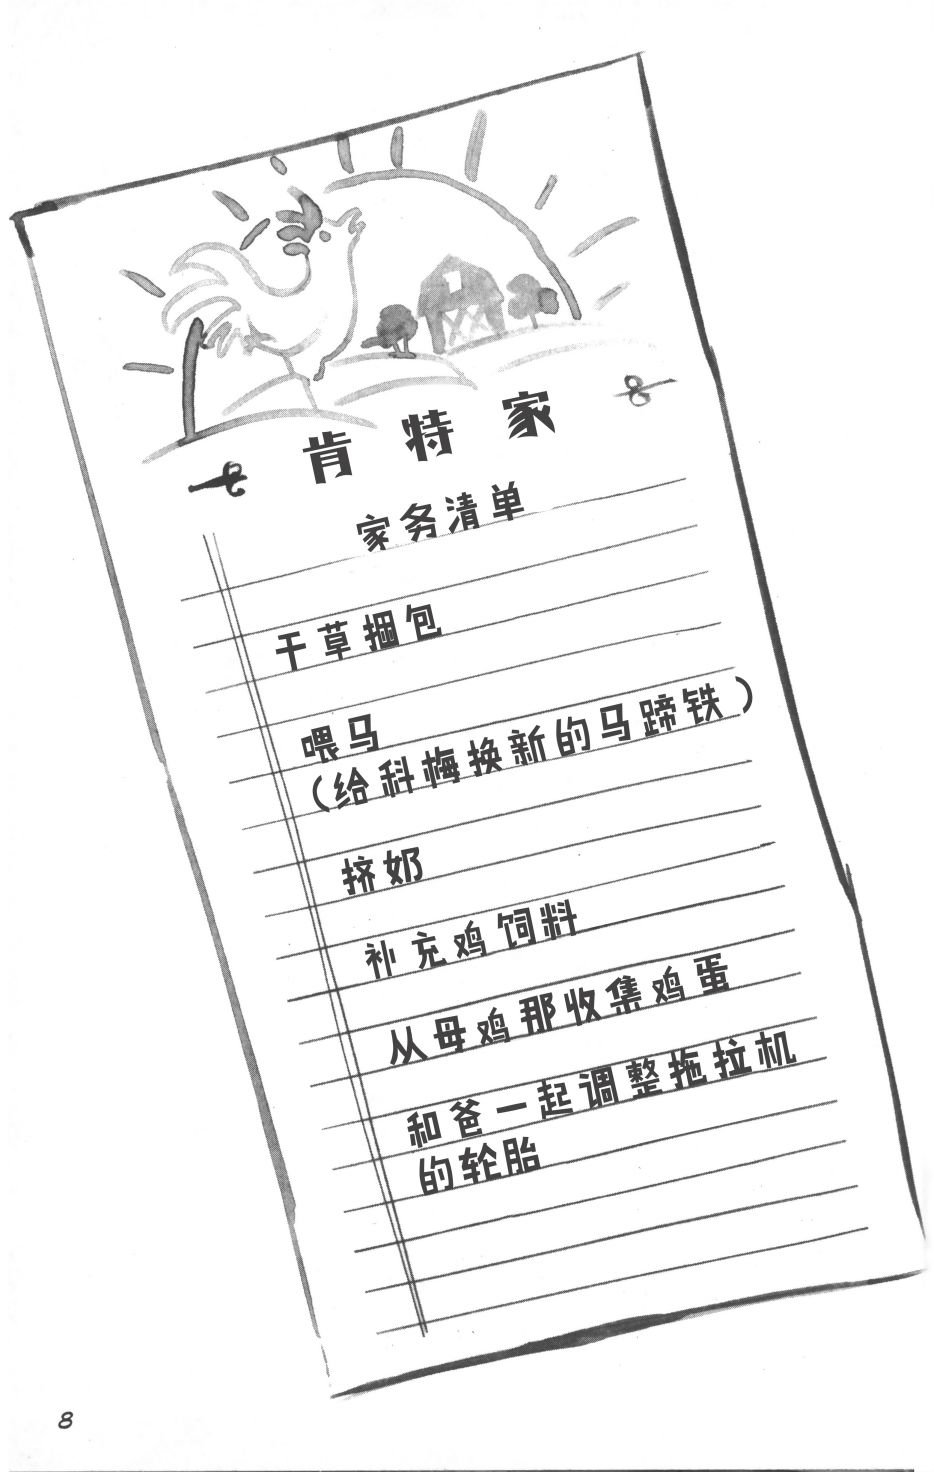 肯特家
家务清单
干草捆包
喂马
（给科梅换新的马蹄铁）
挤奶
补充鸡饲料
从母鸡那收集鸡蛋
和爸一起调整拖拉机
的轮胎
8